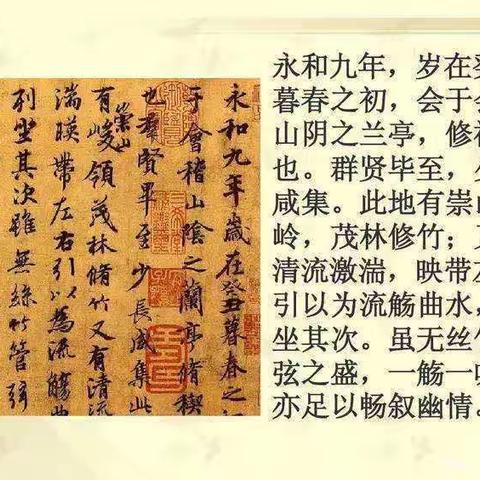 永和九年歲在癸丑暮春之初
于會稽山陰之蘭亭脩稧
也羣賢畢至少長咸集此
有崇山峻領茂林脩竹又有清流
湍暎帶左右引以為流觴曲
列坐其次雖無絲竹管弦
永和九年，岁在癸
暮春之初，会于会
山阴之兰亭，修禊
也。群贤毕至，少
咸集。此地有崇山
岭，茂林修竹；又
清流激湍，映带左
引以为流觞曲水，
坐其次。虽无丝竹
弦之盛，一觞一咏
亦足以畅叙幽情。